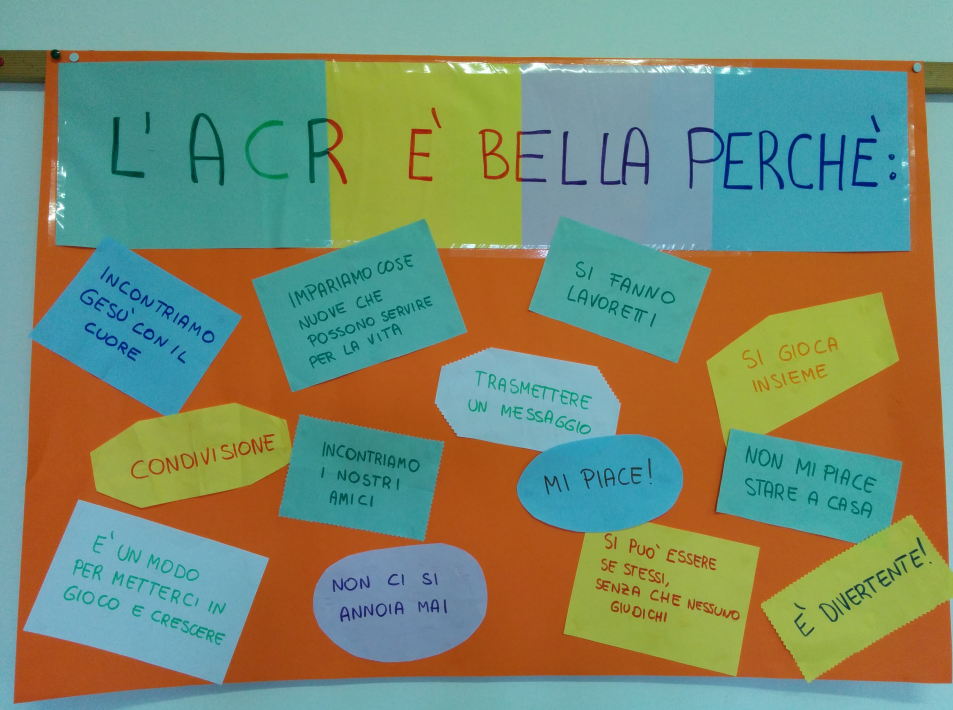 L'ACR E' BELLA PERCHÈ:
INCONTRIAMO
GESU' CON IL
CUORE
IMPARIAMO COSE
NUOVE CHE
POSSONO SERVIRE
PER LA VITA
SI FANNO
LAVORETTI
TRASMETTERE
UN MESSAGGIO
SI GIOCA
INSIEME
CONDIVISIONE
INCONTRIAMO
I NOSTRI
AMICI
MI PIACE!
NON MI PIACE
STARE A CASA
E' UN MODO
PER METTERCI IN
GIOCO E CRESCERE
NON CI SI
ANNOIA MAI
SI PUO' ESSERE
SE STESSI,
SENZA CHE NESSUNO
GIUDICHI
È DIVERTENTE!